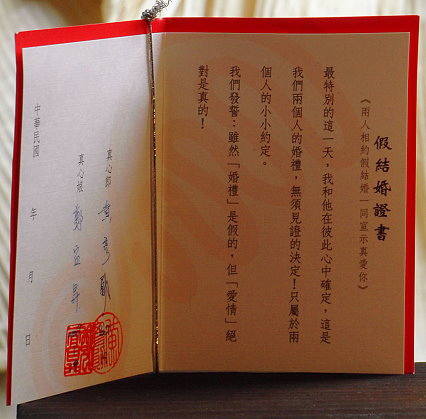 假結婚證書
《兩人相約假結婚一同宣示真愛你》
最特別的這一天，我和他在彼此心中確定，這是
我們兩個人的婚禮，無須見證的決定！只屬於兩
個人的小小約定。
我們發誓：雖然「婚禮」是假的，但「愛情」絕
對是真的！
真心郎
真心娘
中華民國　年　月　日